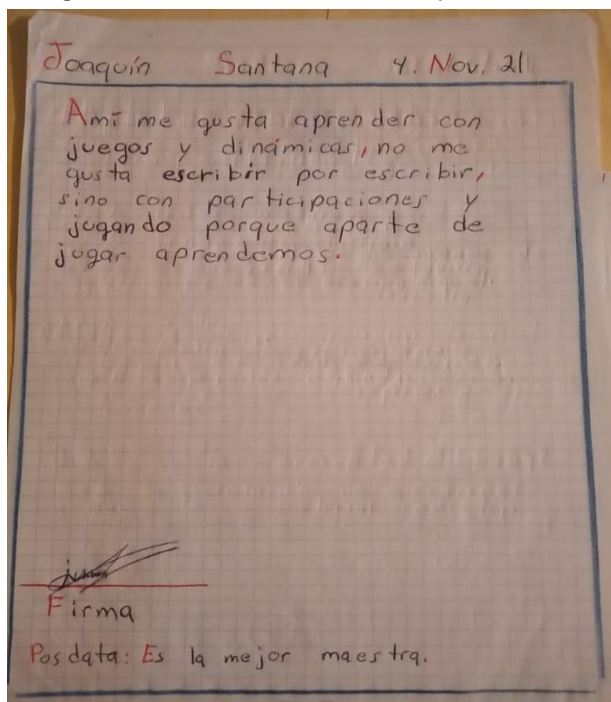 Joaquín Santana 4. Nov. 21
Amí me gusta aprender con
juegos y dinámicas, no me
gusta escribir por escribir,
sino con participaciones y
jugando porque aparte de
jugar aprendemos.
Firma
Posdata: Es la mejor maestra.